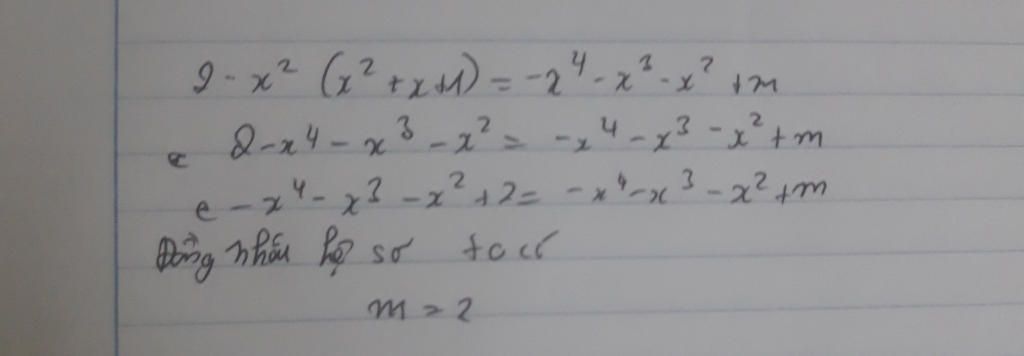 2 - x² (x² + x + 1) = -x⁴ - x³ - x² + m
2 - x⁴ - x³ - x² = -x⁴ - x³ - x² + m
-x⁴ - x³ - x² + 2 = -x⁴ - x³ - x² + m
Đồng nhất hệ số ta có
m = 2